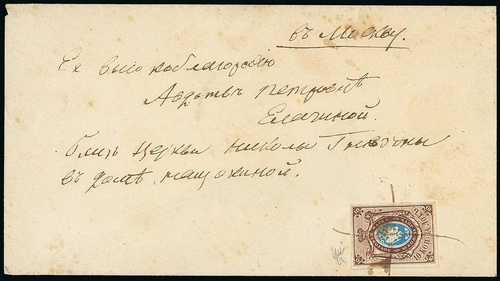 въ Москву.
Ея высокоблагородію
Авдотьѣ Петровнѣ
Елагиной.
близ Церкви николы
въ домѣ нащокиной.